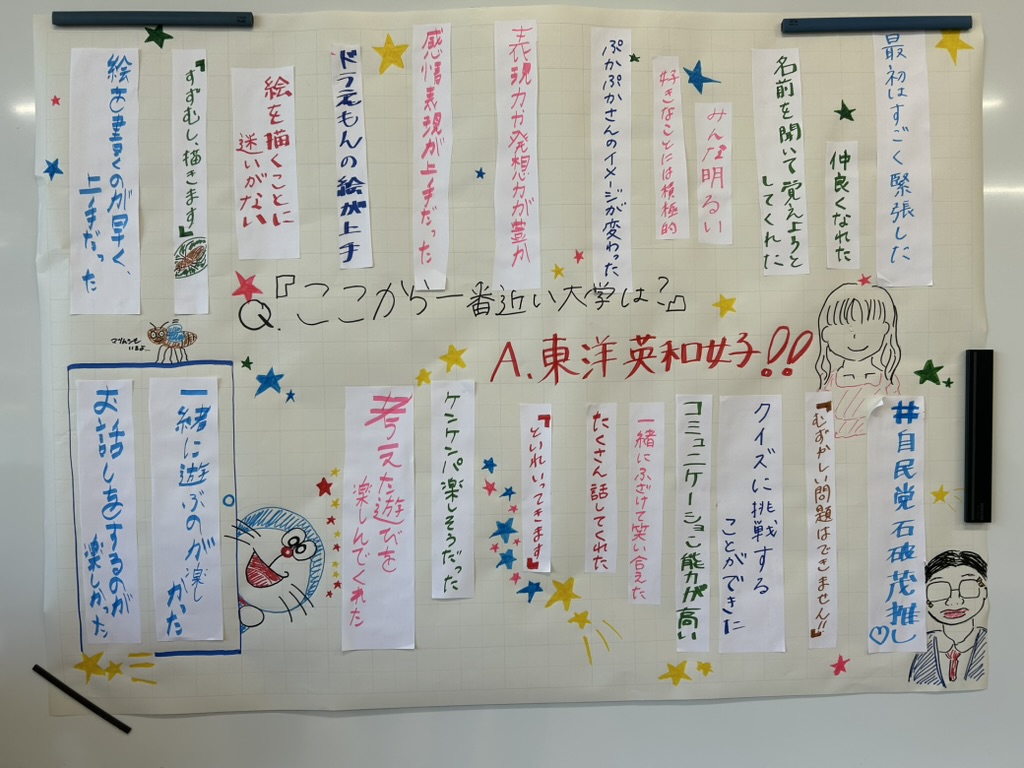 最初はすごく緊張した
仲良くなれた
名前を聞いて覚えようと
してくれた
みんな明るい
好きなことには積極的
ぷかぷかさんのイメージが変わった
表現力や発想力が豊か
感情表現が上手だった
ドラえもんの絵が上手
絵を描くことに
迷いがない
『すずむし、描きます』
絵を書くのが早く、
上手だった
Q.『ここから一番近い大学は?』
A.東洋英和女子!!
#自民党石破茂推し♡
『むずかしい問題はできません!!』
クイズに挑戦する
ことができた
コミュニケーション能力が高い
一緒にふざけて笑い合えた
たくさん話してくれた
『といれいってきます』
ケンケンパ楽しそうだった
考えた遊びを
楽しんでくれた
一緒に遊ぶのが楽し
かった
お話しをするのが
楽しかった